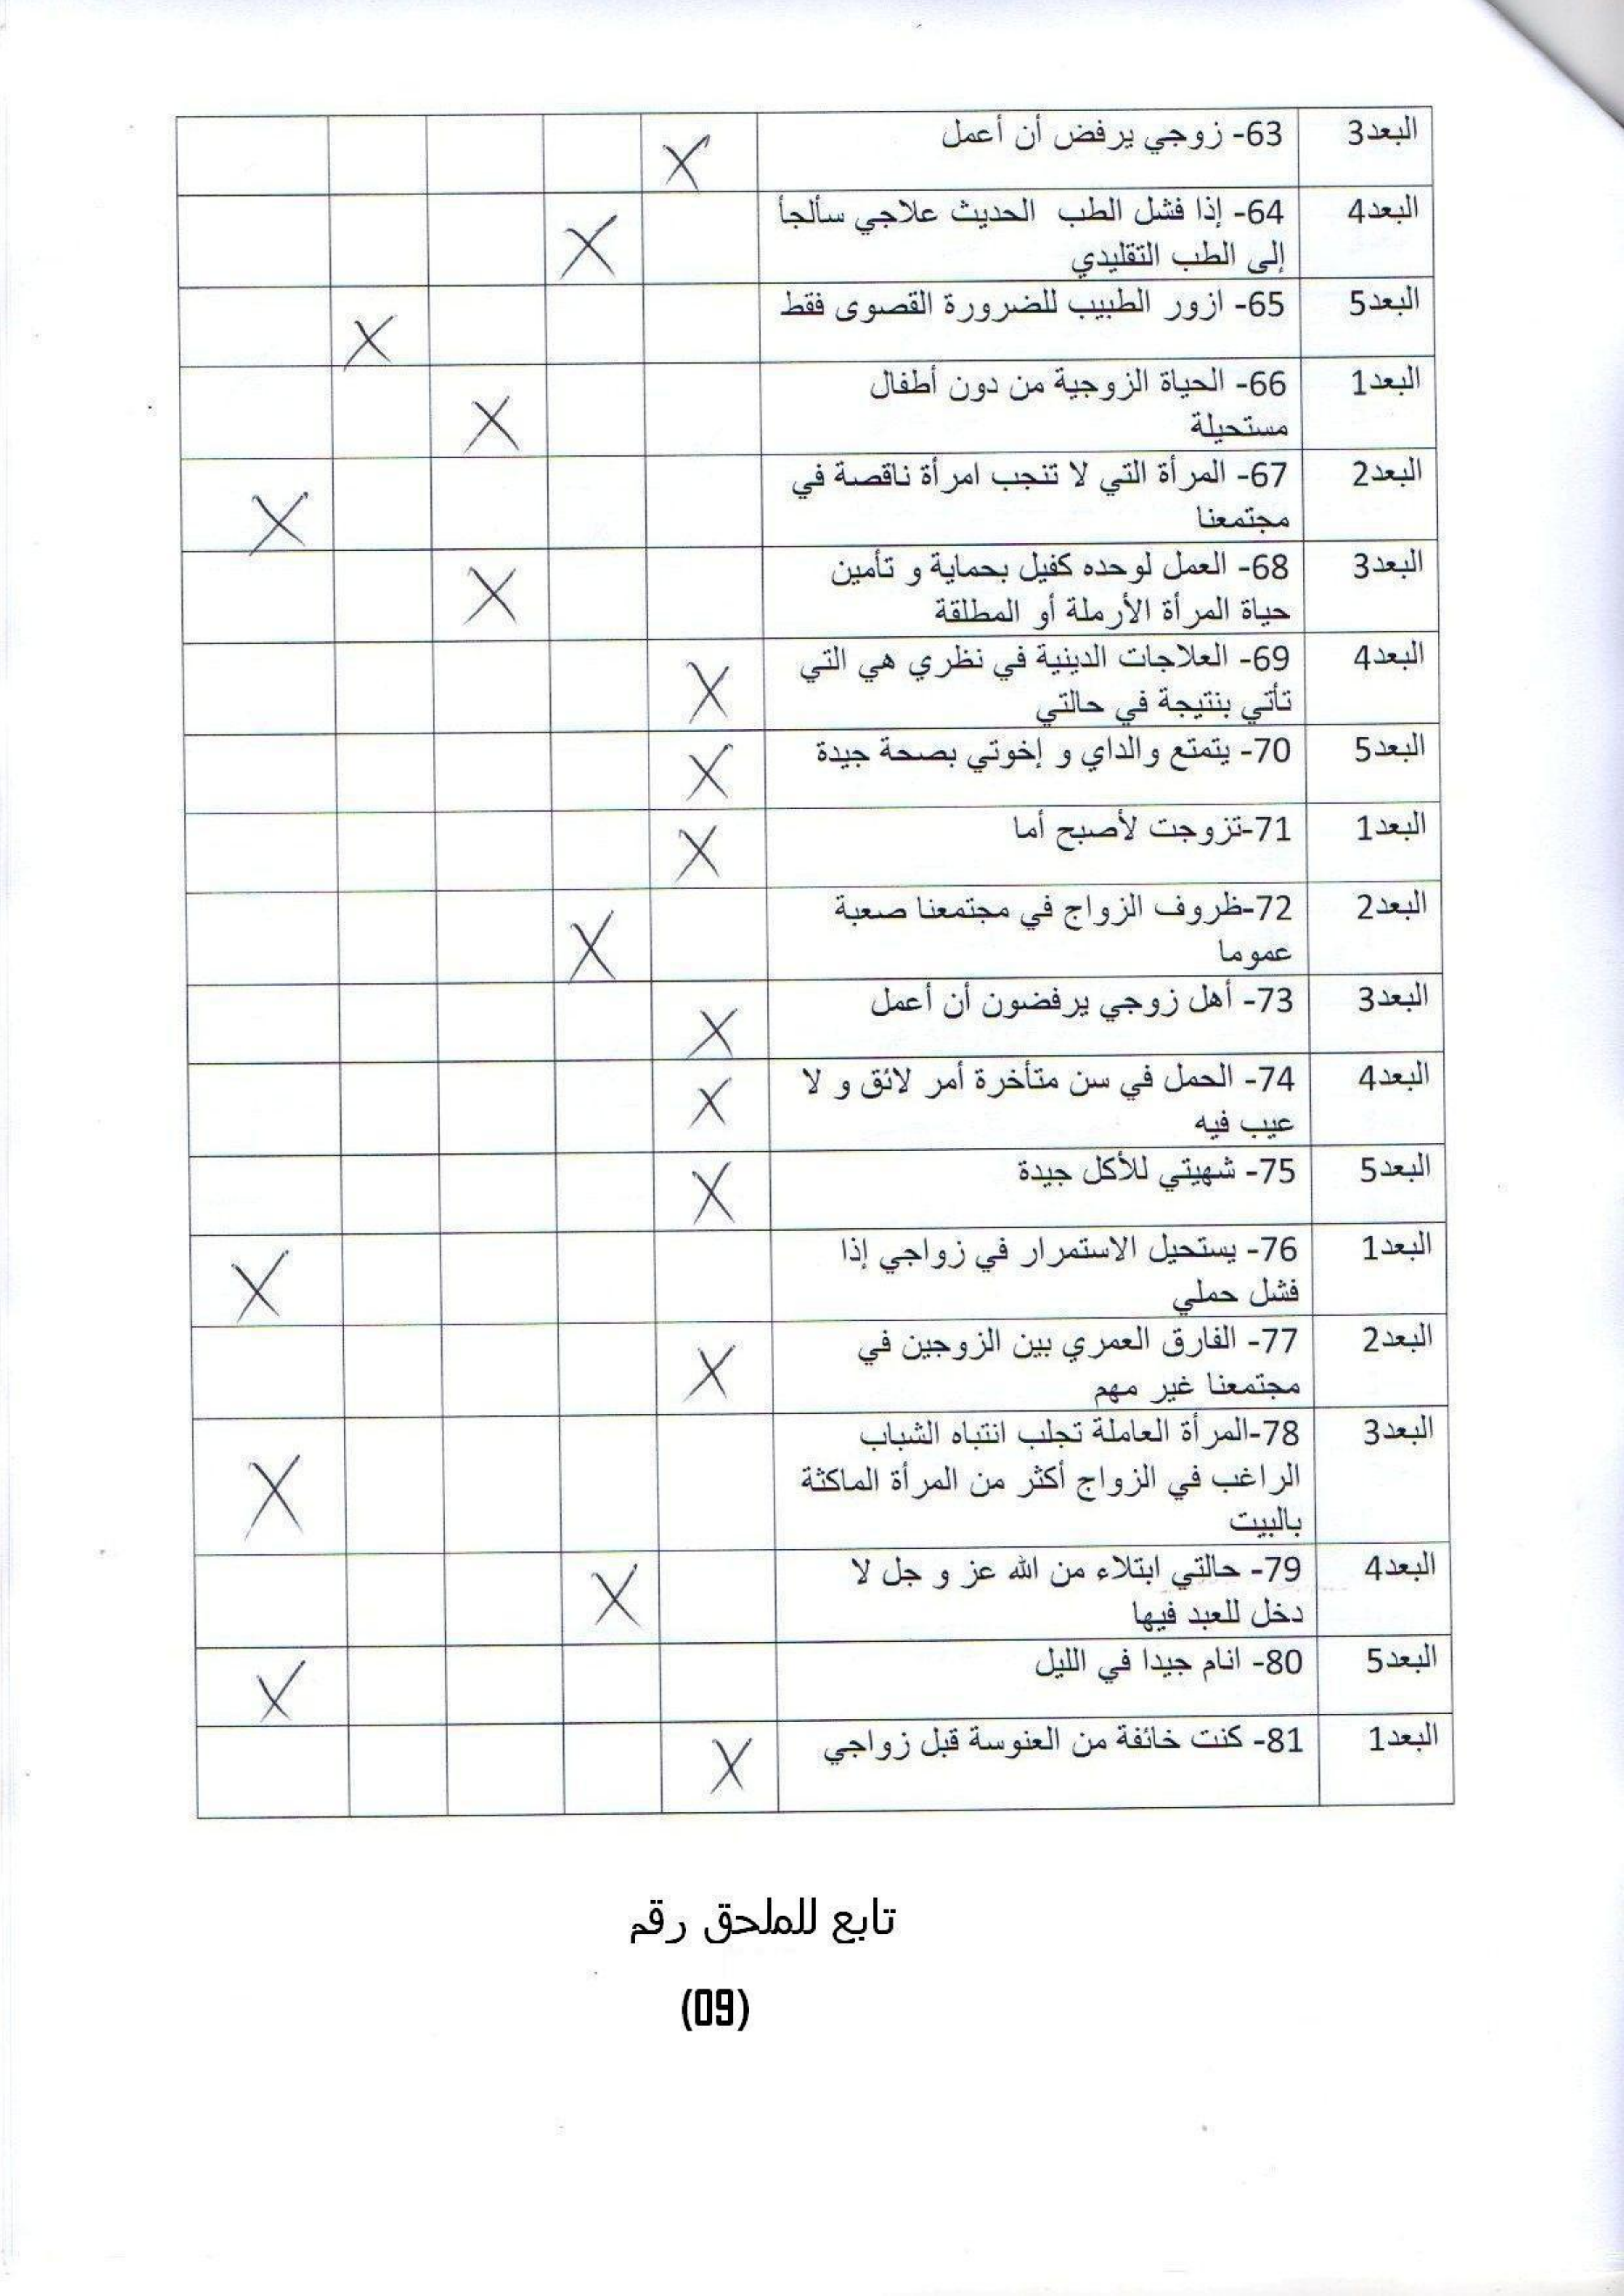 البعد3 63- زوجي يرفض أن أعمل X
البعد4 64- إذا فشل الطب الحديث علاجي سألجأ
إلى الطب التقليدي X
البعد5 65- ازور الطبيب للضرورة القصوى فقط X
البعد1 66- الحياة الزوجية من دون أطفال
مستحيلة X
البعد2 67- المرأة التي لا تنجب امرأة ناقصة في
مجتمعنا X
البعد3 68- العمل لوحده كفيل بحماية و تأمين
حياة المرأة الأرملة أو المطلقة X
البعد4 69- العلاجات الدينية في نظري هي التي
تأتي بنتيجة في حالتي X
البعد5 70- يتمتع والداي و إخوتي بصحة جيدة X
البعد1 71-تزوجت لأصبح أما X
البعد2 72-ظروف الزواج في مجتمعنا صعبة
عموما X
البعد3 73- أهل زوجي يرفضون أن أعمل X
البعد4 74- الحمل في سن متأخرة أمر لائق و لا
عيب فيه X
البعد5 75- شهيتي للأكل جيدة X
البعد1 76- يستحيل الاستمرار في زواجي إذا
فشل حملي X
البعد2 77- الفارق العمري بين الزوجين في
مجتمعنا غير مهم X
البعد3 78-المرأة العاملة تجلب انتباه الشباب
الراغب في الزواج أكثر من المرأة الماكثة
بالبيت X
البعد4 79- حالتي ابتلاء من الله عز و جل لا
دخل للعبد فيها X
البعد5 80- انام جيدا في الليل X
البعد1 81- كنت خائفة من العنوسة قبل زواجي X
تابع للملحق رقم
(09)